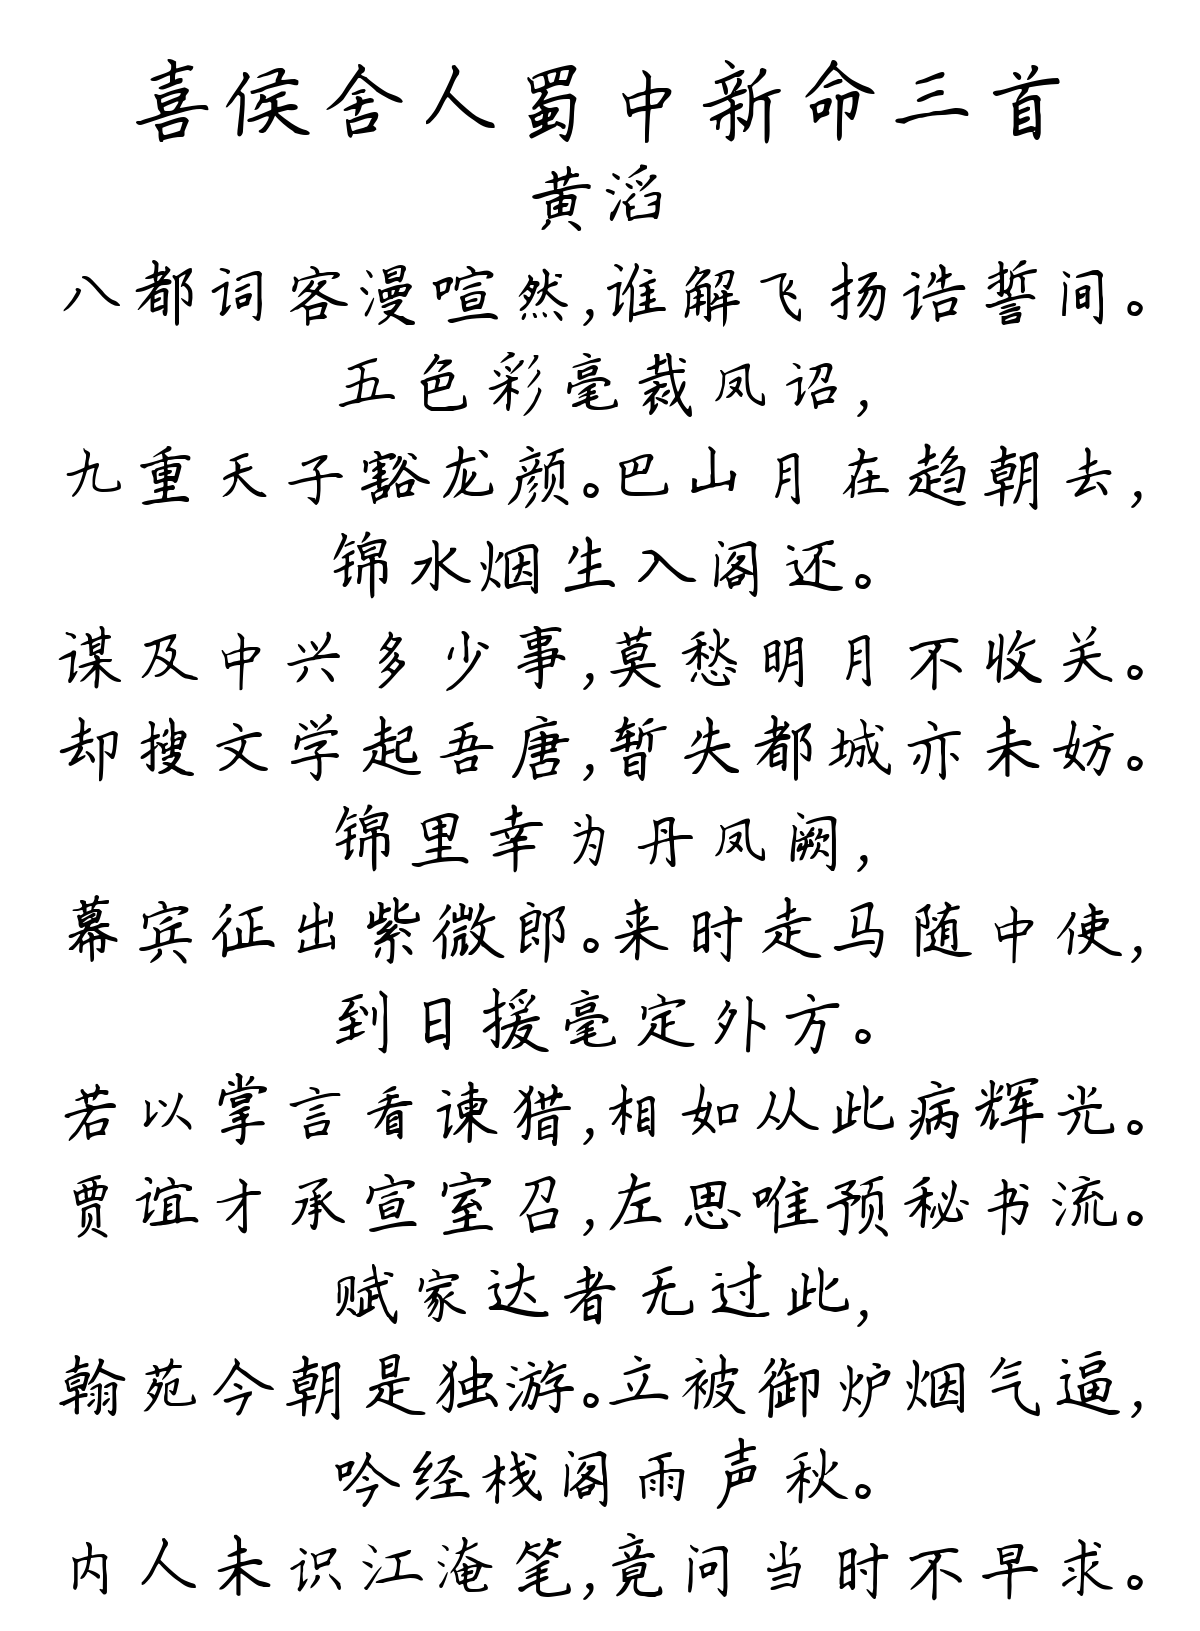 喜侯舍人蜀中新命三首
黄滔
八都词客漫喧然,谁解飞扬诰誓间。
五色彩毫裁凤诏,
九重天子豁龙颜。巴山月在趋朝去,
锦水烟生入阁还。
谋及中兴多少事,莫愁明月不收关。
却搜文学起吾唐,暂失都城亦未妨。
锦里幸为丹凤阙,
幕宾征出紫微郎。来时走马随中使,
到日援毫定外方。
若以掌言看谏猎,相如从此病辉光。
贾谊才承宣室召,左思唯预秘书流。
赋家达者无过此,
翰苑今朝是独游。立被御炉烟气逼,
吟经栈阁雨声秋。
内人未识江淹笔,竟问当时不早求。